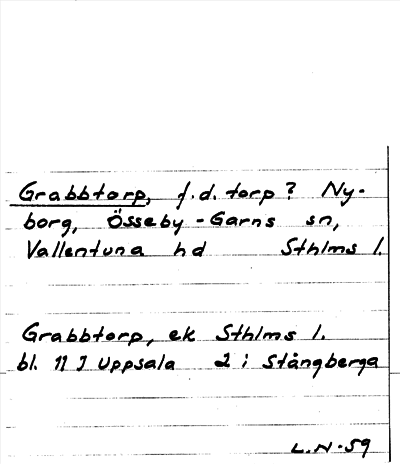 Grabbtorp, f.d. torp? Ny-
borg, Össeby-Garns sn,
Vallentuna hd Sthlms l.
Grabbtorp, ek Sthlms l.
bl. 11 J Uppsala 2 i Stångberga
L.N-59